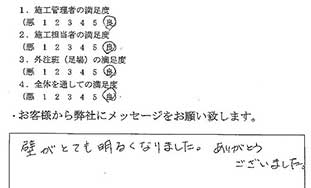 1．施工管理者の満足度
（悪 1 2 3 4 5 良）
2．施工担当者の満足度
（悪 1 2 3 4 5 良）
3．外注班（足場）の満足度
（悪 1 2 3 4 5 良）
4．全体を通しての満足度
（悪 1 2 3 4 5 良）
・お客様から弊社にメッセージをお願い致します。
壁がとても明るくなりました。ありがとう
ございました。